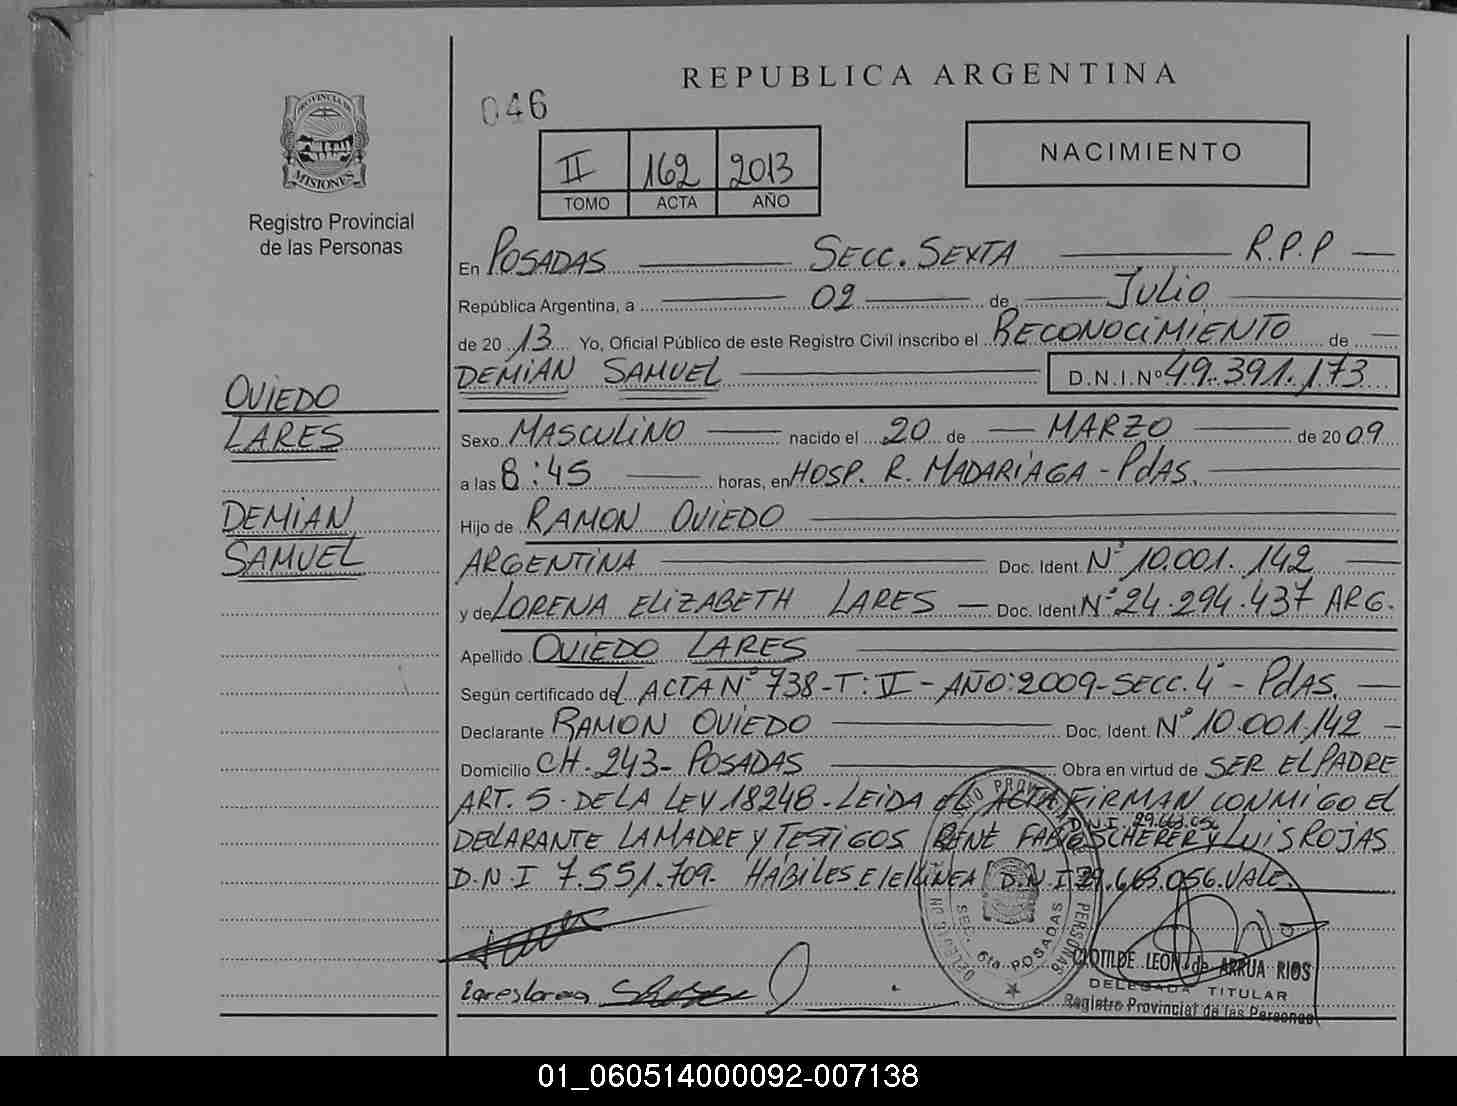 REPUBLICA ARGENTINA
046
PROVINCIA DE
MISIONES
Registro Provincial
de las Personas
II 162 2013
TOMO ACTA AÑO
NACIMIENTO
En POSADAS SECC. SEXTA R.P.P
República Argentina, a 02 de Julio
de 20 13 Yo, Oficial Público de este Registro Civil inscribo el RECONOCIMIENTO de
DEMIAN SAMUEL D.N.I.Nº 49.391.173
OVIEDO
LARES
DEMIAN
SAMUEL
Sexo MASCULINO nacido el 20 de MARZO de 20 09
a las 8:45 horas, en HOSP. R. MADARIAGA - PdAS.
Hijo de RAMON OVIEDO
ARGENTINA Doc. Ident. Nº 10.001.142
y de LORENA ELIZABETH LARES Doc. Ident. Nº 24.294.437 ARG.
Apellido OVIEDO LARES
Según certificado del ACTA Nº 738-T: VI - AÑO: 2009-SECC. 4ª - PdAS.
Declarante RAMON OVIEDO Doc. Ident. Nº 10.001.142
Domicilio CH. 243 - POSADAS Obra en virtud de SER EL PADRE
ART. 5. DE LA LEY 18248. LEIDA EL ACTA FIRMAN CONMIGO EL
D.N.I 29.663.056
DECLARANTE LA MADRE Y TESTIGOS RENE FABIO SCHERER Y LUIS ROJAS
D.N.I 7.551.709. HABILES. E/ELINEA D.N.I 29.663.056. VALE.
SEC. 6ta. POSADAS
CLOTILDE LEON de ARRUA RIOS
DELEGADA TITULAR
Registro Provincial de las Personas
01_060514000092-007138